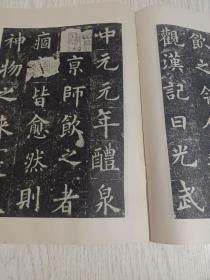 飲之令人
觀漢記曰光武
中元元年醴泉
京師飲之者
痼皆愈然則
神物之来